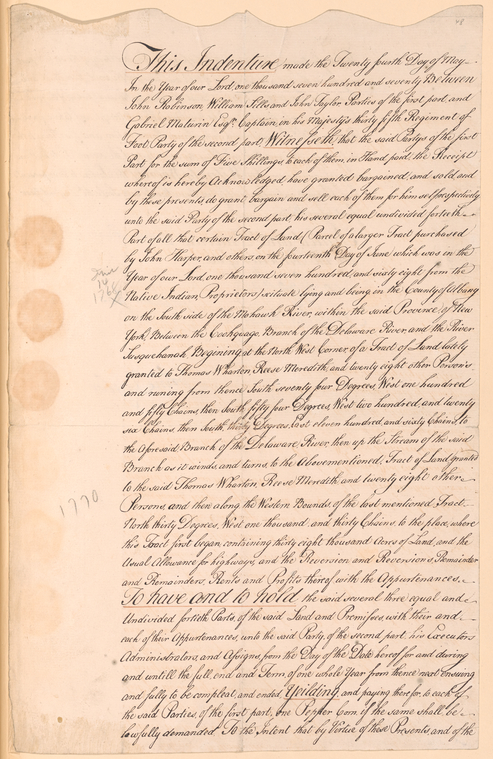 48
This Indenture made the Twenty fourth Day of May
In the Year of our Lord one thousand seven hundred and seventy Between
John Robinson, William Ills and John Taylor Parties of the first part, and
Gabriel Maturin Esqr. Captain in his Majesty's thirty fifth Regiment of
Foot Party of the second part, Witnesseth, that the said Partys of the first
Part for the sum of Five Shillings to each of them, in Hand paid, the Receipt
whereof is hereby Acknowledged, have granted bargained, and sold and
by these presents do grant bargain and sell each of them for himself respectively
unto the said Party of the second part his several equal undivided fortieth
Part of all that certain Tract of Land (Parcel of a larger Tract purchased
by John Harper, and others, on the fourteenth Day of June which was in the
Year of our Lord one thousand seven hundred, and sixty eight from the
Native Indian Proprietors) scituate lying and being in the County of Albany
on the South side of the Mohawk River, within the said Provence of New
York, Between the Cookquago, Branch of the Delaware River, and the River
Susquehanah, Begining at the North West Corner, of a Tract of Land lately
granted to Thomas Wharton, Reese Meredith, and twenty eight other Person's
and runing from thence South seventy four Degrees, West one hundred
and fifty Chains, then South fifty four Degrees, West two hundred, and twenty
six Chains, then South thirty Degrees, East eleven hundred, and sixty Chains, to
the Aforesaid Branch of the Delaware, River, then up the Stream of the said
Branch as it winds and turns to the Abovementioned, Tract of Land granted
to the said Thomas Wharton, Reese Meredith, and twenty eight other
Persons, and then along the Western Bounds of the last mentioned Tract
North thirty Degrees, West one thousand, and thirty Chains, to the place, where
this Tract first began, containing thirty eight thousand Acres of Land, and the
Usual Allowance for highways, and the Reversion and Reversion's, Remainder
and Remainders, Rents and Profits thereof, with the Appurtenances,
To have and to hold the said several three equal and
Undivided fortieth Parts, of the said Land and Premisses, with their and
each of their Appurtenances, unto the said Party, of the second part, his Executors
Administrators, and Assigns, from the Day of the Date hereof for and during
and untill the full end and Term, of one whole Year from thence next ensuing
and fully to be compleat, and ended, Yeilding, and paying therefor, to each of
the said Parties, of the first part, one Pepper Corn, if the same shall be
lawfully demanded. To the Intent that by Virtue of these Presents, and of the
June
14
1768
1770